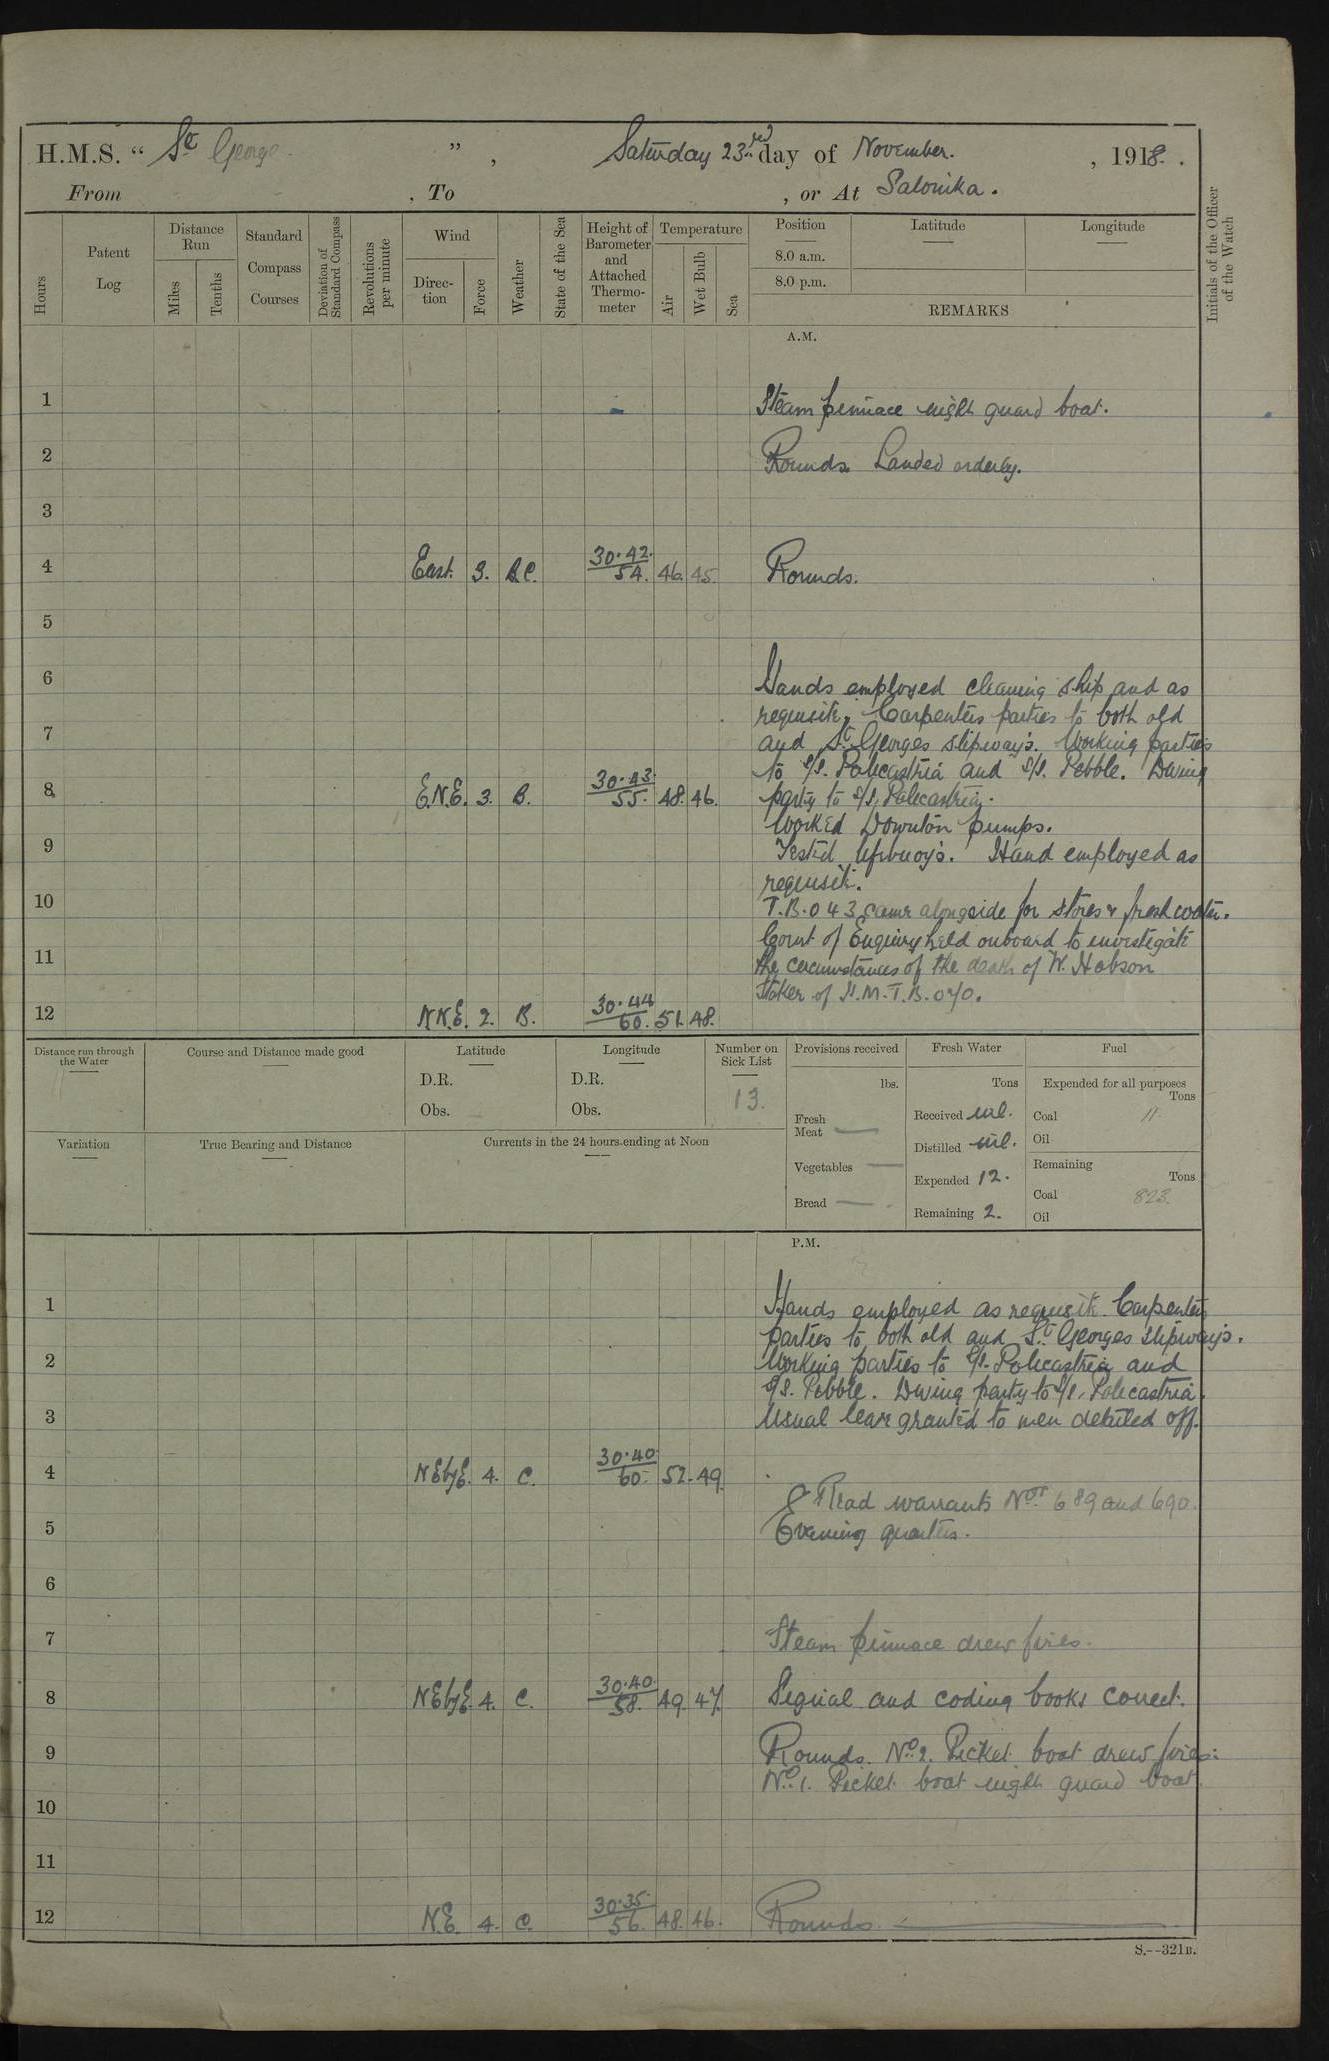 H.M.S. “ St George ” , Saturday 23rd day of November. , 1918.
From , To , or At Salonika.
Hours
Patent Log
Distance Run
Miles
Tenths
Standard Compass Courses
Deviation of Standard Compass
Revolutions per minute
Wind
Direc-tion
Force
Weather
State of the Sea
Height of Barometer and Attached Thermo-meter
Temperature
Air
Wet Bulb
Sea
Position
Latitude
Longitude
8.0 a.m.
8.0 p.m.
REMARKS
Initials of the Officer of the Watch
A.M.
1 Steam pinnace night guard boat.
2 Rounds. Landed orderly.
3
4 East. 3. B.C. 30.42. 54. 46. 45. Rounds.
5
6
Hands employed cleaning ship and as
requisite, Carpenters parties to both old
7
and St Georges slipways. Working parties
to S/S. Policastria and S/S. Pebble. Diving
8 E.N.E. 3. B. 30.43. 55. 48. 46. party to S/S. Policastria.
Worked Downton pumps.
9 Tested lifebuoys. Hand employed as
requisite.
10 T.B. 043 came alongside for stores & fresh water.
Court of Enquiry held onboard to investigate
11 the circumstances of the death of W. Hobson
Stoker of H.M.T.B. 070.
12 N.N.E. 2. B. 30.44 60. 51. 48.
Distance run through the Water
Course and Distance made good
Latitude
D.R.
Obs.
Longitude
D.R.
Obs.
Number on Sick List
13.
Provisions received
lbs.
Fresh Meat —
Vegetables —
Bread —
Fresh Water
Tons
Received nil.
Distilled nil.
Expended 12.
Remaining 2.
Fuel
Expended for all purposes
Tons
Coal 11
Oil
Remaining
Tons
Coal 823.
Oil
Variation
True Bearing and Distance
Currents in the 24 hours ending at Noon
P.M.
1 Hands employed as requisite. Carpenters
parties to both old and St Georges slipways.
2 Working parties to S/S. Policastria and
S/S. Pebble. Diving party to S/S. Policastria.
3 Usual leave granted to men detailed off.
4 NEbyE. 4. C. 30.40. 60. 52. 49.
Read warrants Nos 689 and 690.
5 Evening quarters.
6
7 Steam pinnace drew fires.
8 NEbyE. 4. C. 30.40. 58. 49. 47. Signal and coding books correct.
9 Rounds. No 2. Picket boat drew fires:
No 1. Picket boat night guard boat.
10
11
12 N.E. 4. C. 30.35. 56. 48. 46. Rounds.
S.--321B.